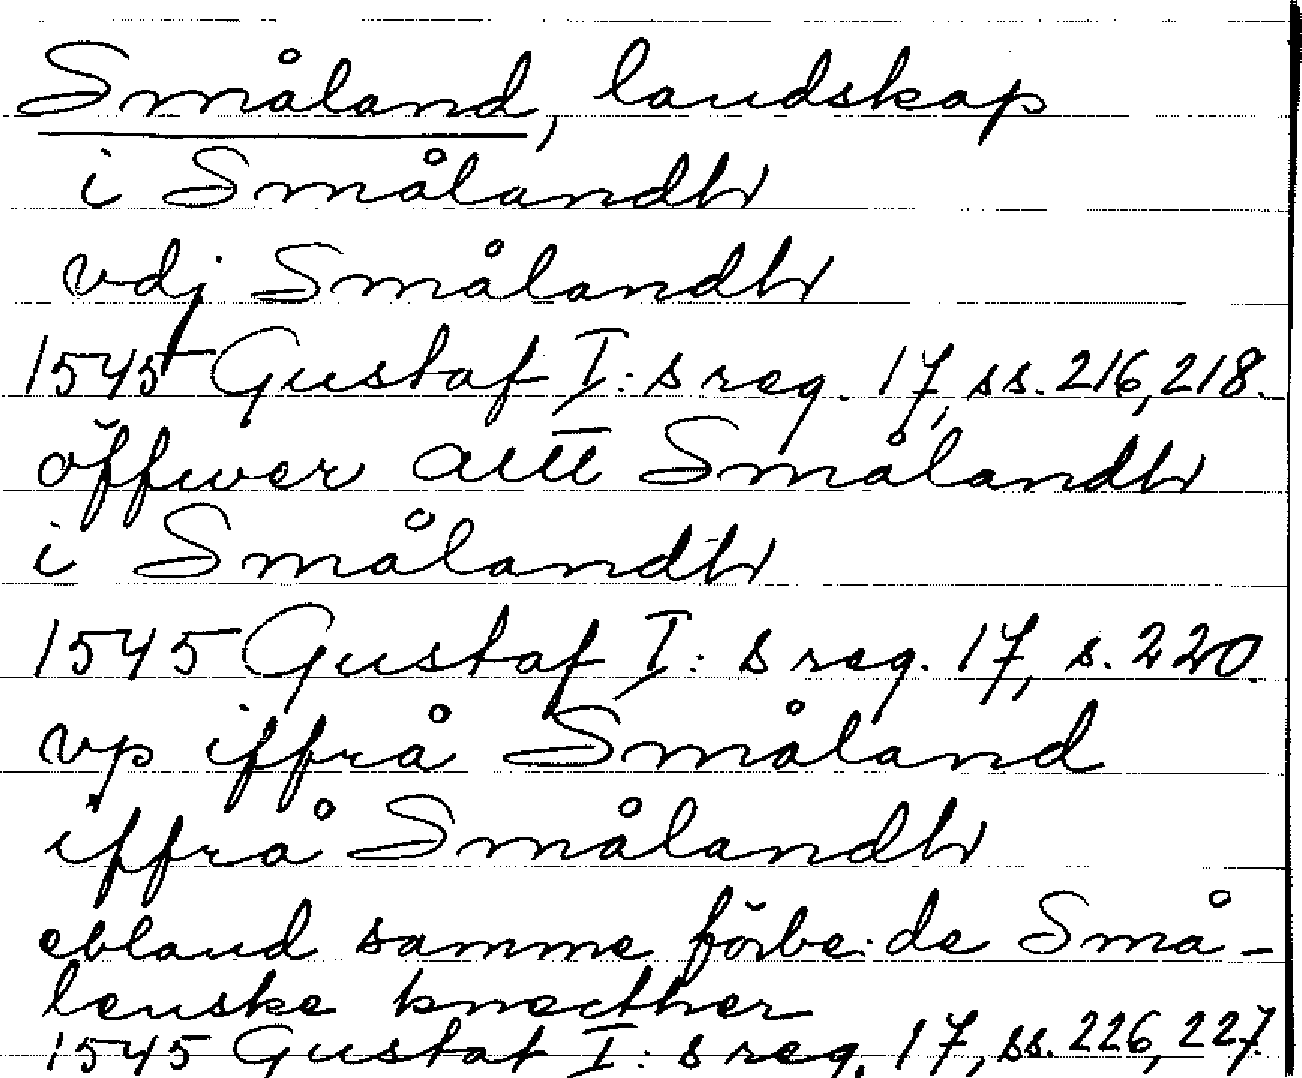 Småland, landskap
i Smålandh
vdj Smålandh
1545 Gustaf I:s reg. 17, ss. 216, 218.
öffwer altt Smålandh
i Smålandh
1545 Gustaf I:s reg. 17, s. 220.
vp iffrå Småland
iffrå Smålandh
ebland samme förbe:de Små-
lenske knecther
1545 Gustaf I:s reg. 17, ss. 226, 227.